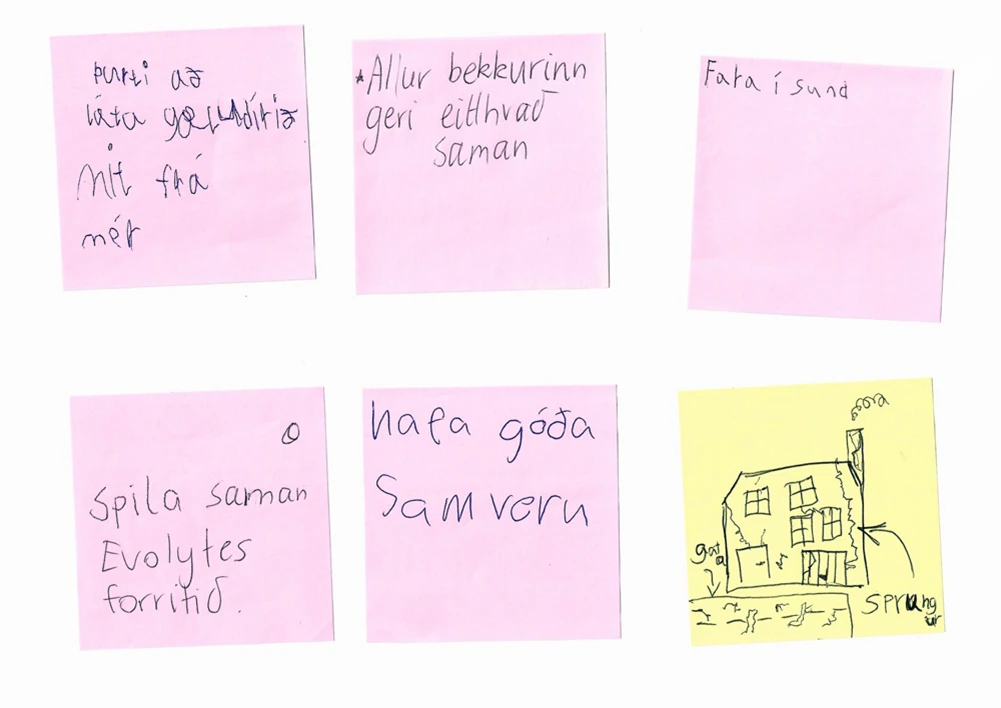 þurti að
láta gæludírið
mit frá
mér
*Allur bekkurinn
geri eitthvað
saman
Fara í sund
Spila saman
Evolytes
forritið.
hafa góða
Samveru
gata
sprung
ur